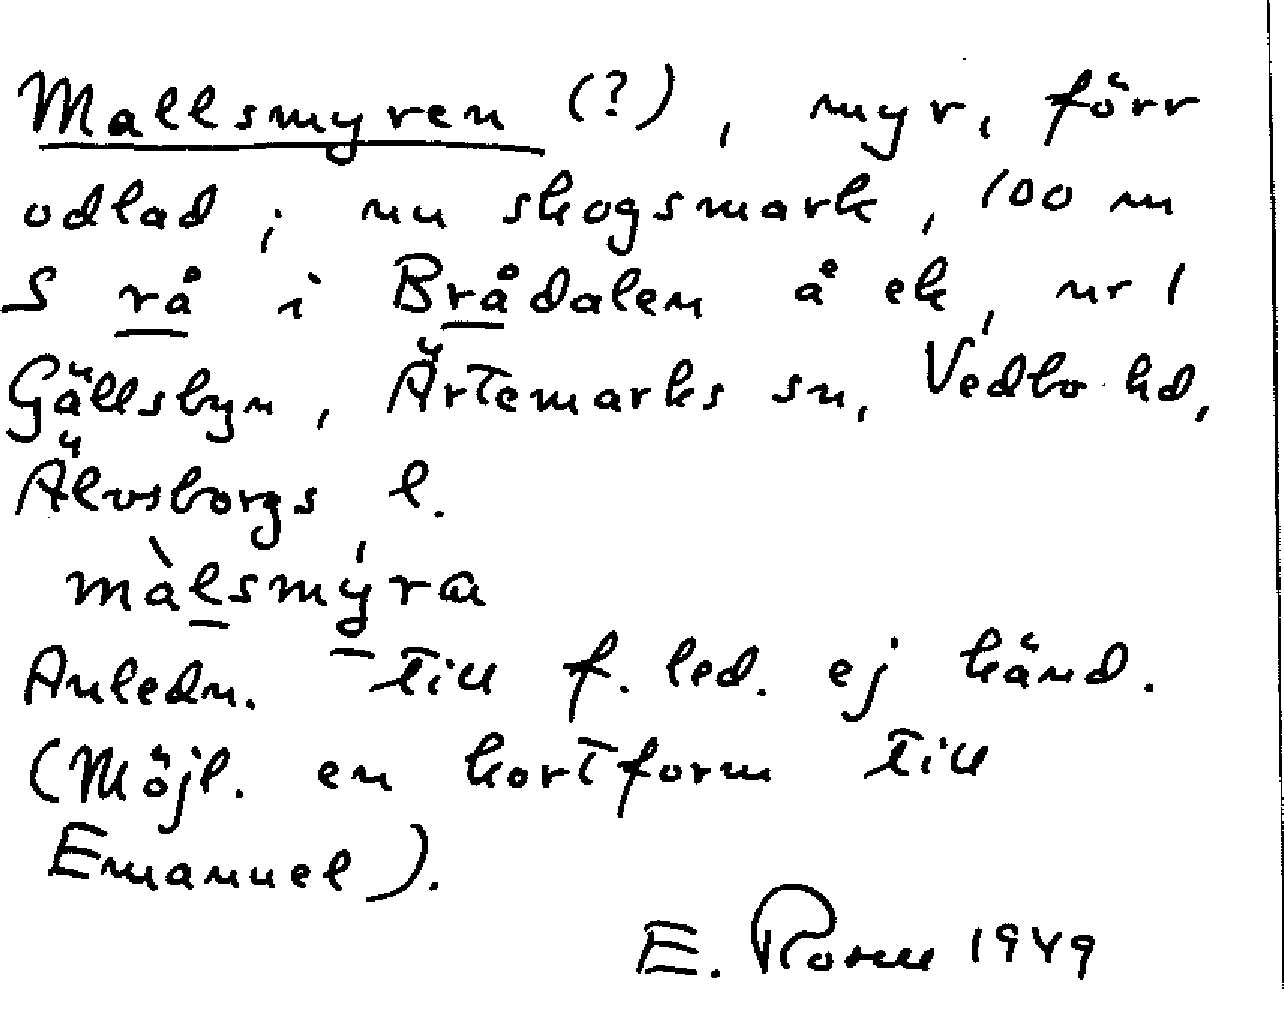 Mallsmyren (?), myr, förr
odlad, nu skogsmark, 100 m
S rå i Brådalen å ek, nr 1
Gällsbyn, Ärtemarks sn, Vedbo hd,
Älvsborgs l.
màlsmýra
Anledn. till f. led. ej känd.
(Möjl. en kortform till
Emanuel).
E. 1949